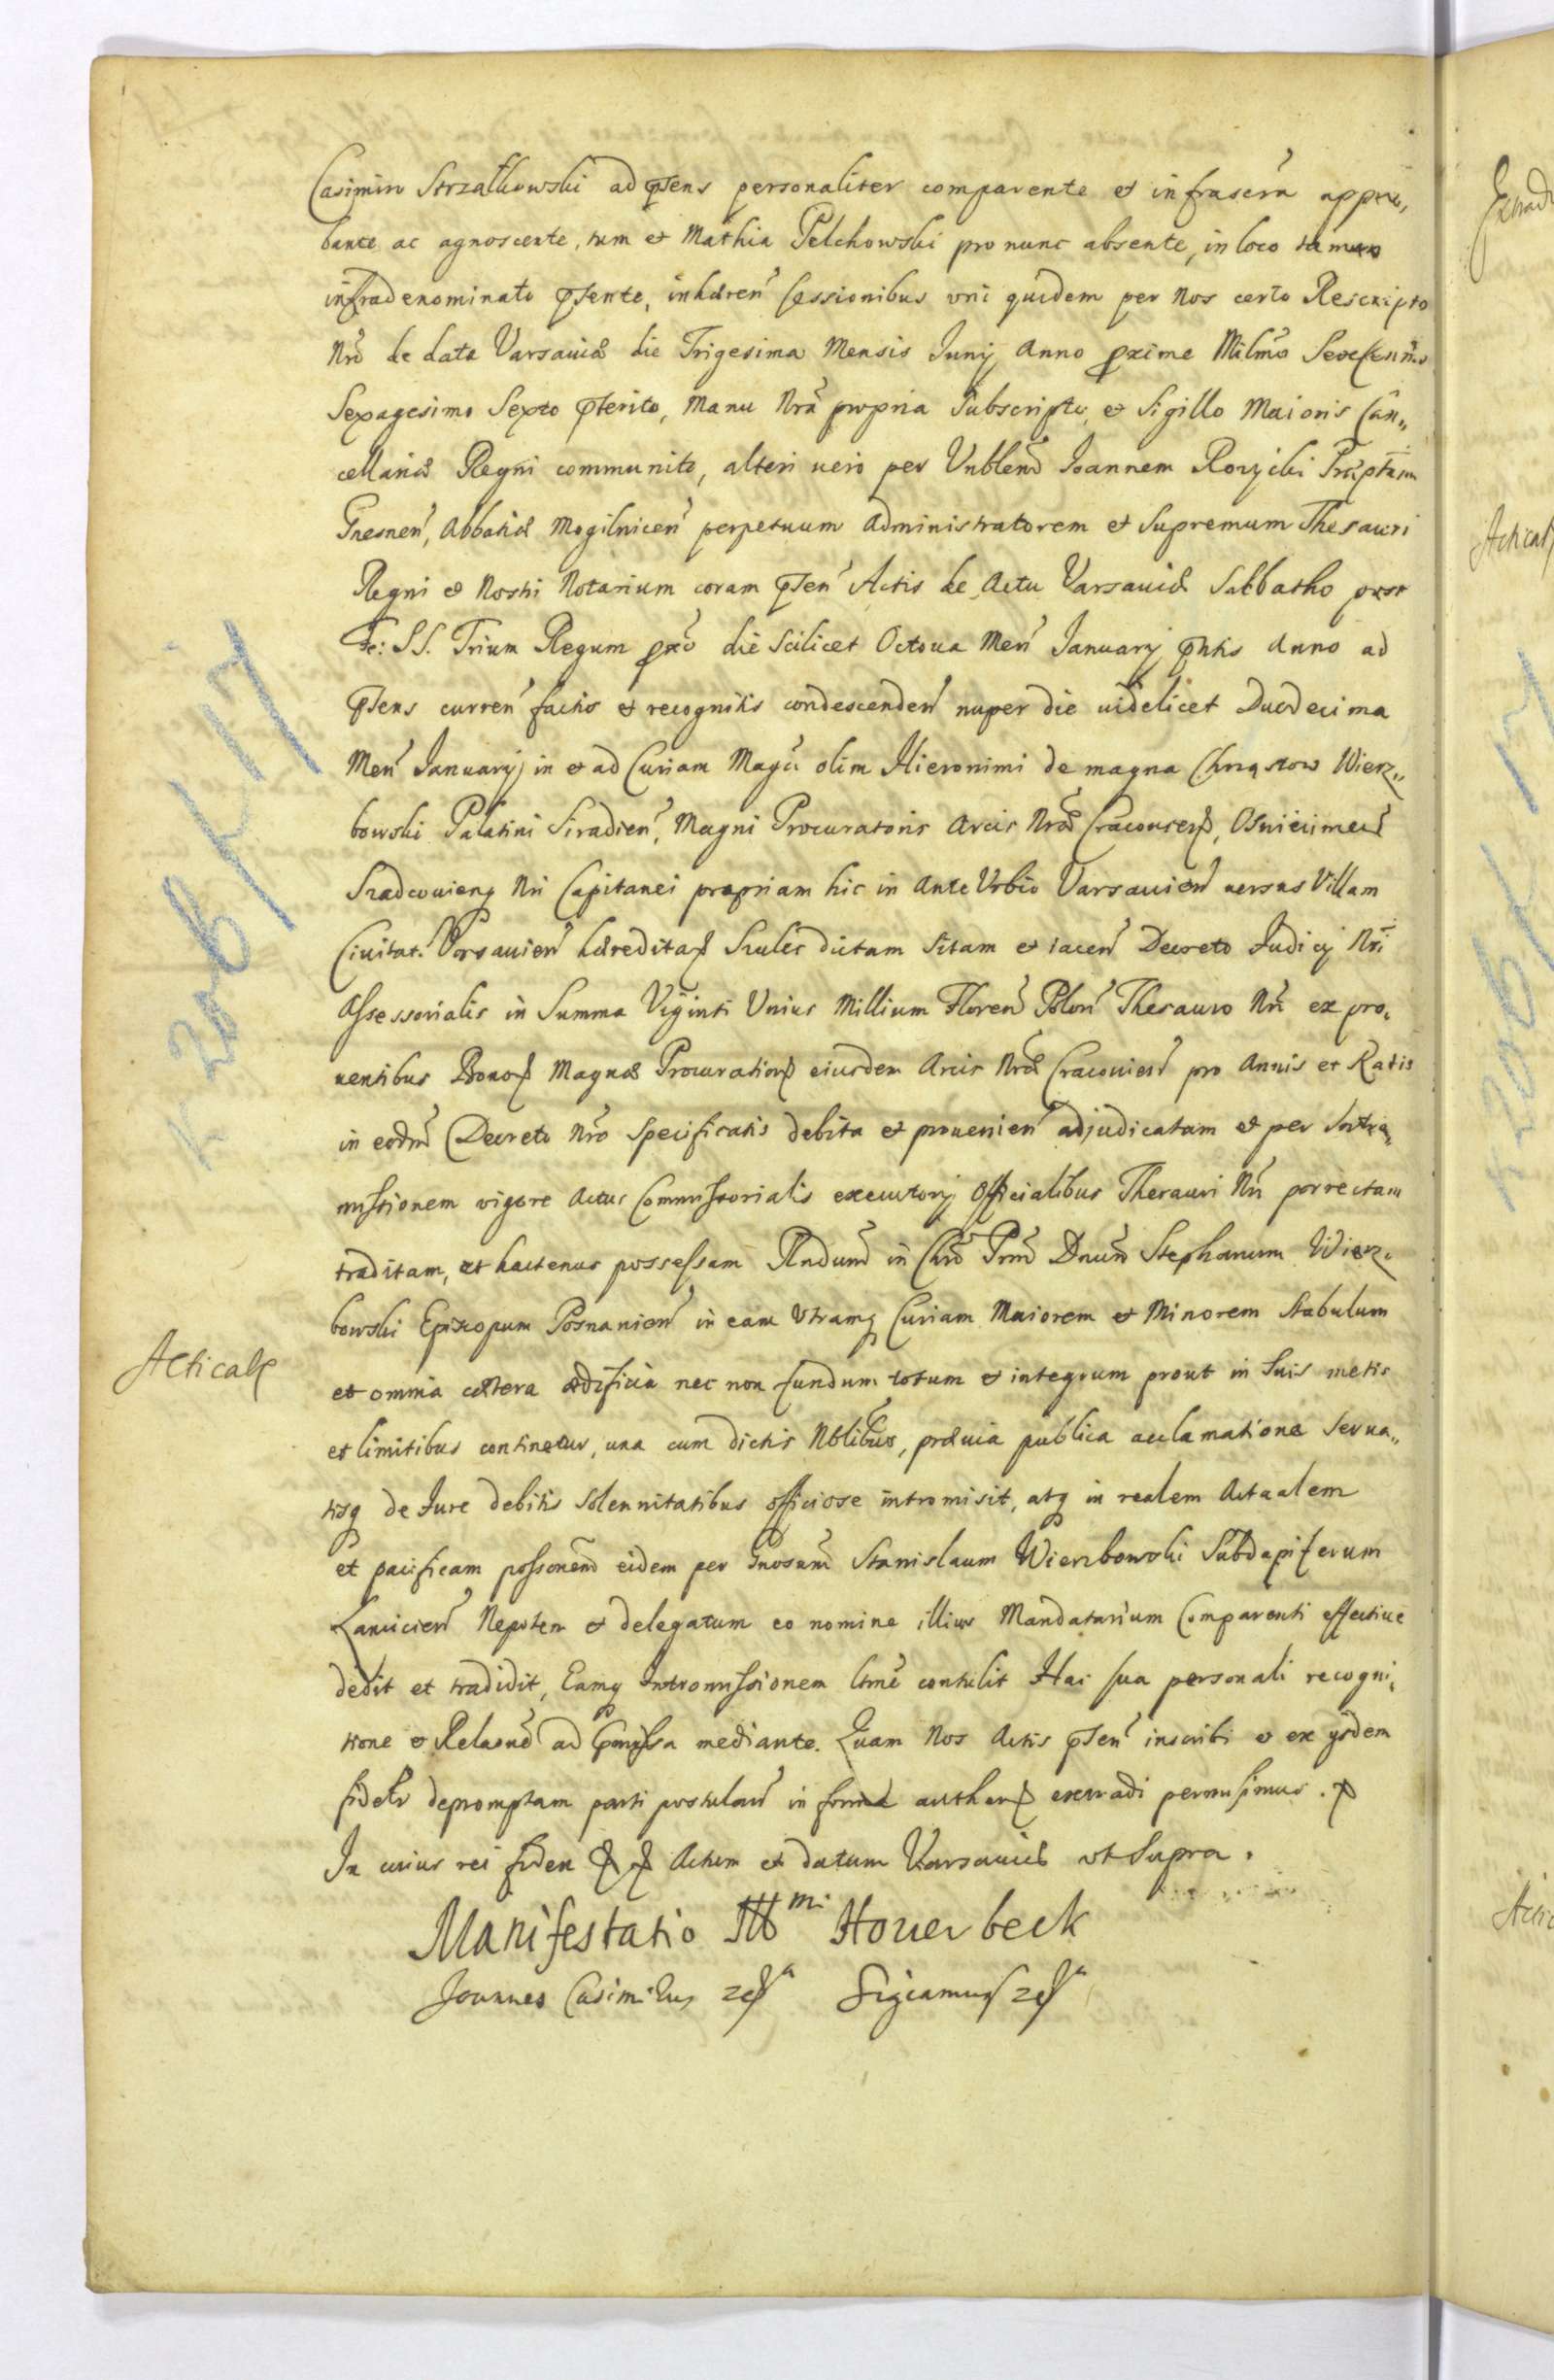 Casimiro Strzałkowski ad pñens personaliter comparente et infrascrãm appro„
bante ac agnoscente, tum et Mathia Pelchowski pro nunc absente, in loco tamen
infradenominato pñente, inhæreñ Cessionibus vni quidem per nos certo Rescripto
Nrõ de data Varsauiæ die Trigesima Mensis Junij Anno pxime Milmõ Sexcenmõ
Sexagesimo Sexto pterito, Manu Nrã propria Subscripto et Sigillo Maioris Can„
cellariæ Regni communito, alteri uero per Vnblem̃ Joannem Rozycki Præptam
Gnesneñ, Abbatiæ Mogilniceñ perpetuum Administratorem et Supremum Thesauri
Regni et Nostri Notarium coram pñteñ Actis de Actu Varsauiæ Sabbatho post
Fe: SS. Trium Regum pxõ die Scilicet Octoua Meñ January pñtis Anno ad
pñens curreñ factis et recognitis condescendeñ nuper die uidelicet Duodecima
Meñ Januarij in et ad Curiam Magci olim Hieronimi de magna Chrząstow Wierz„
bowski Palatini Siradieñ, Magni Procuratoris Arcis Nræ Cracouień, Osviecimeñ
Szadcouieñ Nri Capitanei propriam hic in Ante Vrbio Varsauieñ uersus Villam
Ciuitat: Varsauieñ hæreditar Szulec dictam Sitam et iaceñ Decreto Judicij Nri
Assessorialis in Summa Viginti Vnius Millium Floreñ Poloñ Thesauro Nri ex pro„
uentibus Bonor Magnæ Procurationis eiusdem Arcis Nræ Cracouieñ pro Annis et Ratis
in eodm̃ Decreto Nrõ specificatis debita et prouenieñ adjudicatam et per Intro„
missionem vigore Actus Commissorialis executorij Officialibus Thesauri Nri porrectam
traditam, et hactenus possessam Rndum̃ in Chrõ Prem̃ Dnum̃ Stephanum Wierz„
bowski Episcopum Posnanieñ in eam vtramq Curiam Maiorem et Minorem Stabulum
et omnia cætera ædificia nec non fundum totum et integrum prout in Suis metis
et limitibus continetur, una cum dictis Nblibus, præuia publica acclamatione Serua„
tisq de Jure debitis Solennitatibus officiose intromisit, atq in realem Actualem
et pacificam possonẽm eidem per Gnosum̃ Stanislaum Wierzbowski Subdapiferum
Lanicieñ Nepotem et delegatum eo nomine illius Mandatarium Comparenti effectiue
dedit et tradidit, Eamq Intromissionem ltmẽ contulit Hac sua personali recogni„
tione et Relaonẽ ad pmissa mediante. Quam Nos Actis pñteñ inscribi et ex ysdem
fideltr depromptam parti postulañ in forma authen extradi permisimus.
In cuius rei fidem Actum et datum Varsauiæ vt Supra.
Acticat
K 206/K 17
Manifestatio Illmi Houerbeck
Joannes Casimirus Sigismus